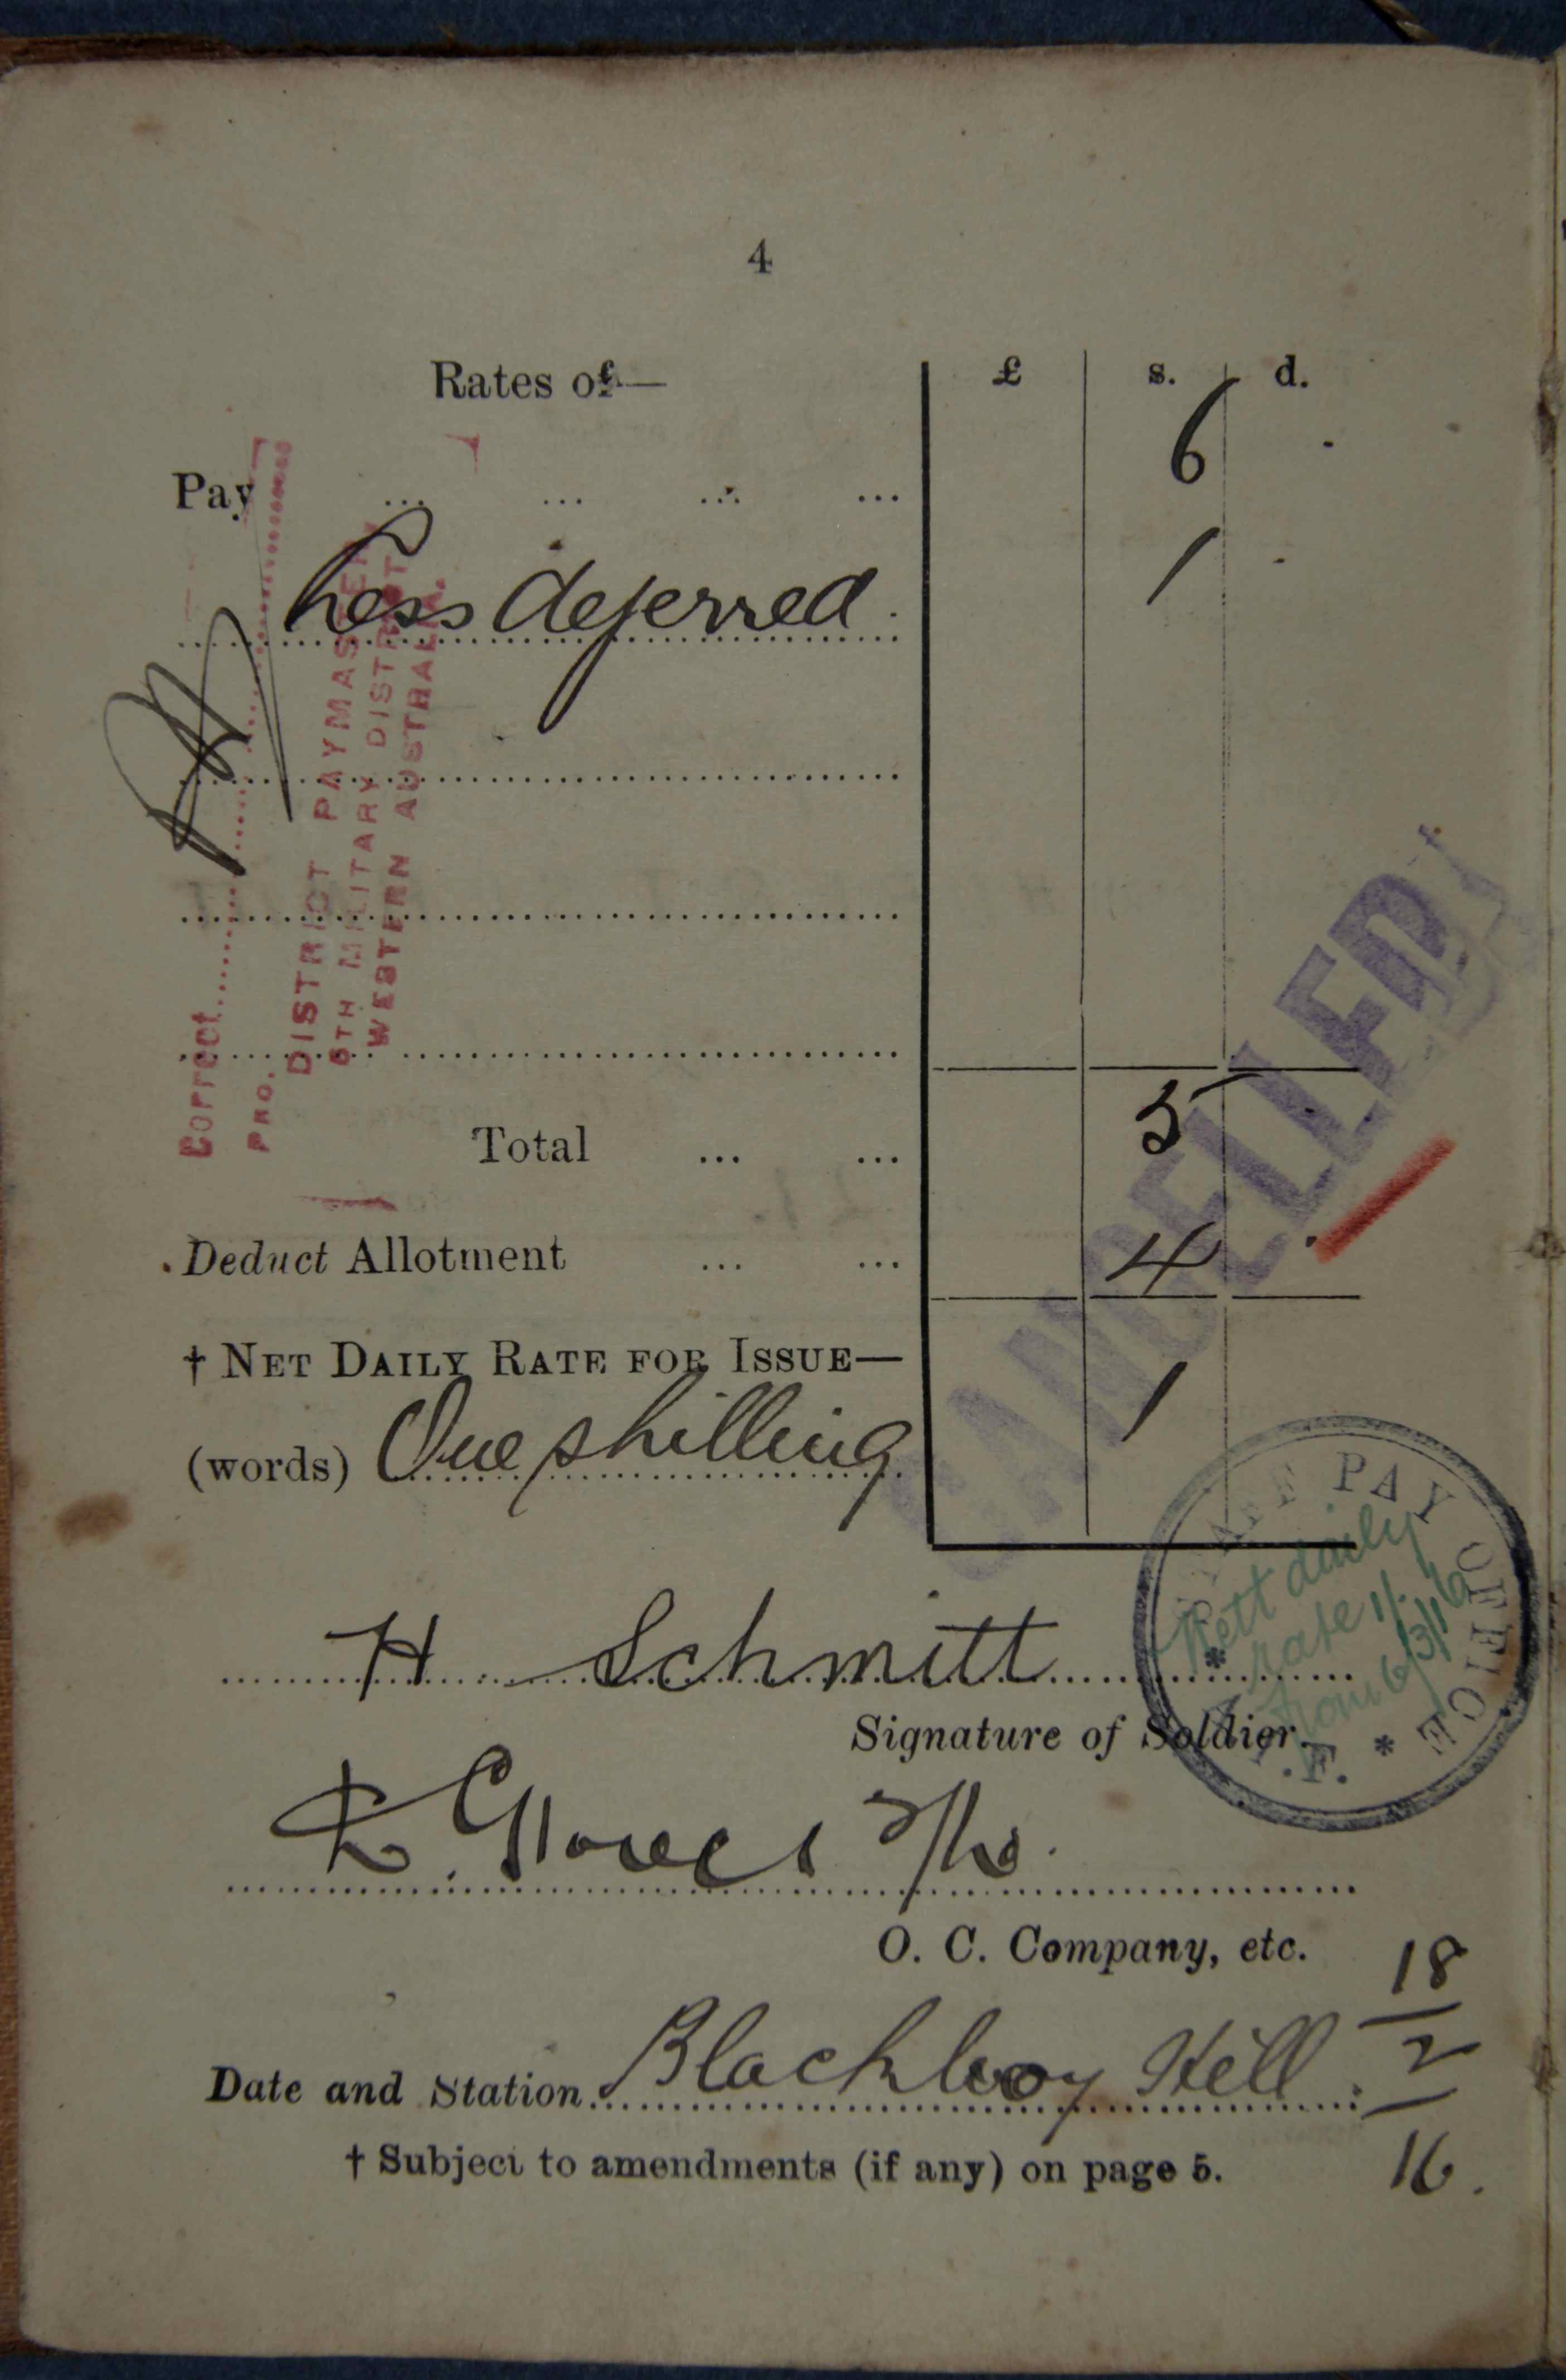 4
Rates of— £ s. d.
Pay ... ... ... ... 6
Less deferred 1
Total ... ... 5
Deduct Allotment ... ... 4
† NET DAILY RATE FOR ISSUE— 1
(words) One shilling
H Schmitt
Signature of Soldier.
O. C. Company, etc.
Date and Station Blackboy Hill 18/2/16.
† Subject to amendments (if any) on page 5.
Correct
PRO.
DISTRICT PAYMASTER
5TH MILITARY DISTRICT
WESTERN AUSTRALIA.
CANCELLED
PAY OFFICE
Nett daily
rate 1/-
from 6/3/16